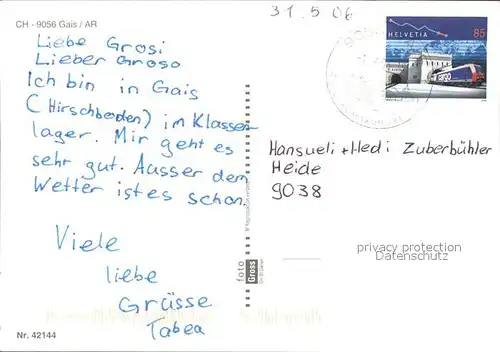 31.5 06
CH - 9056 Gais / AR
HELVETIA 85
Liebe Grosi
Lieber Groso
Ich bin in Gais
(Hirschboden) im Klassen
lager. Mir geht es
sehr gut. Ausser dem
Wetter ist es schön.
Viele
liebe
Grüsse
Tabea
Hansueli + Hedi Zuberbühler
Heide
9038
privacy protection
Datenschutz
foto
Gross
Nr. 42144